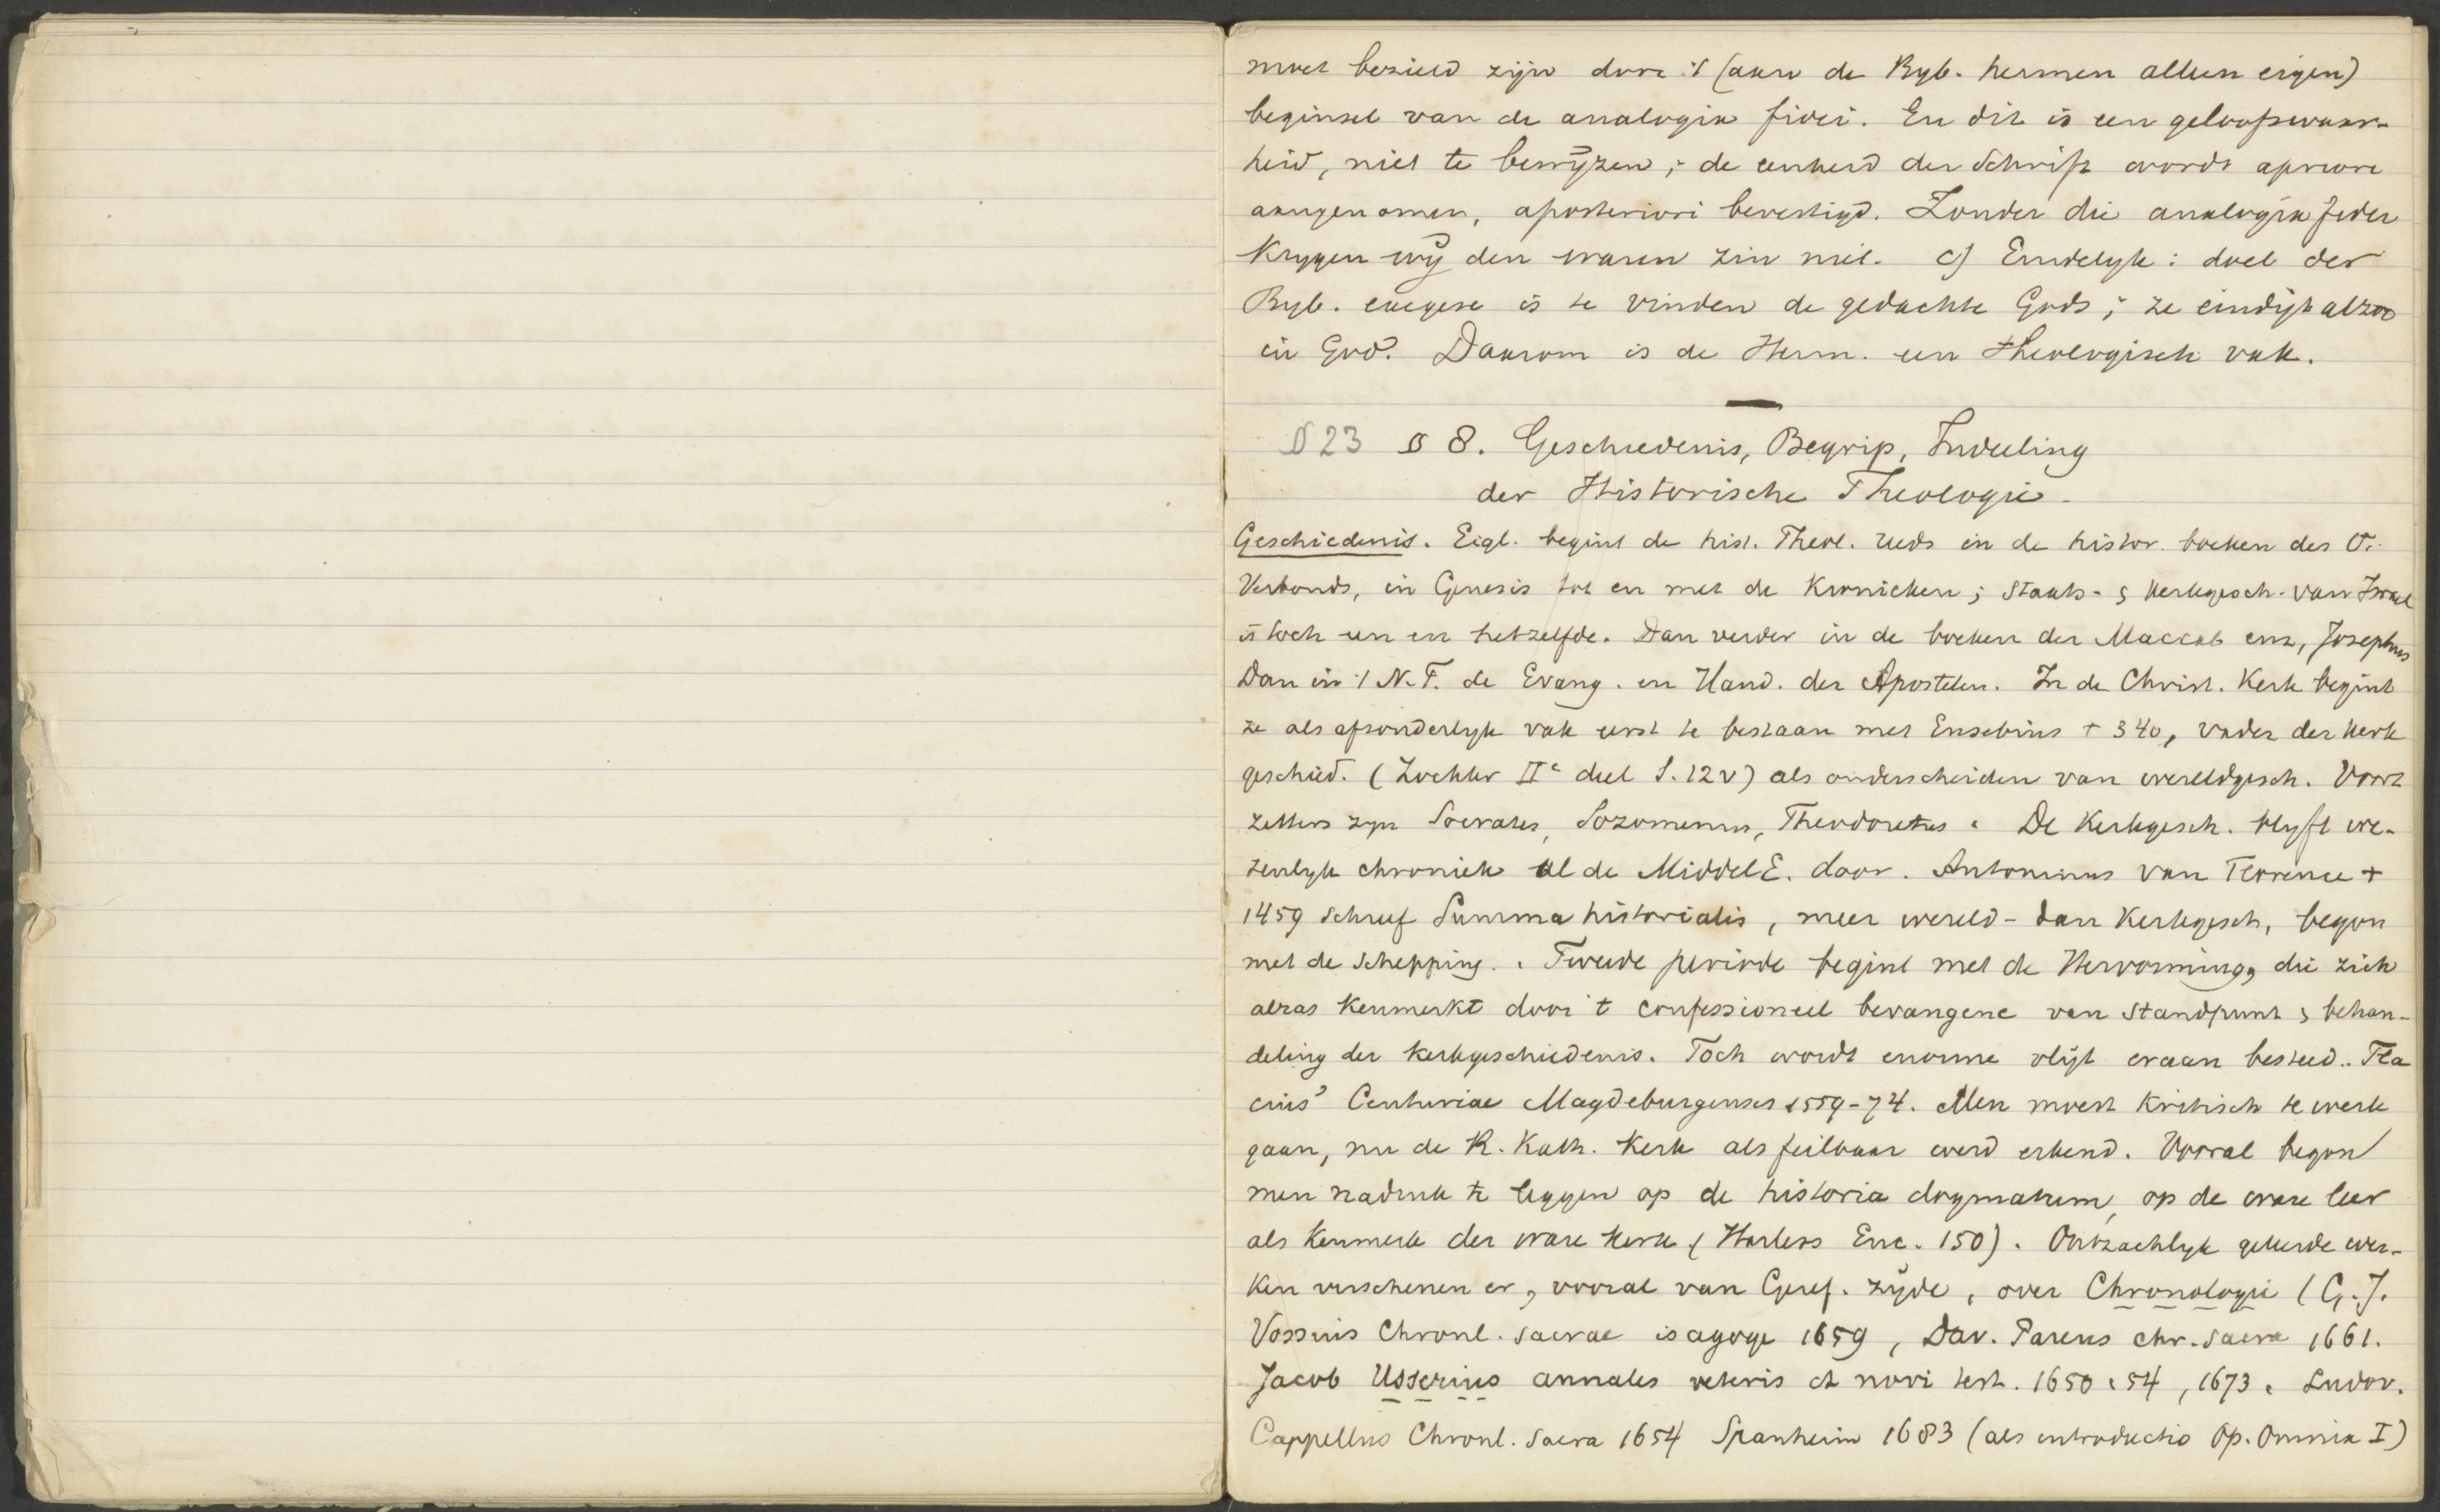 moet bezield zijn door 't (aan de Byb. hermen alleen eigen)
beginsel van de analogia fidei. En dit is een geloofswaar-
heid, niet te bewyzen; de eenheid der Schrift wordt apriori
aangenomen, aposteriori bevestigd. Zonder die analogia fidei
krygen wy den waren zin niet. c) Eindelyk: doel der
Byb. exegese is te vinden de gedachte Gods; ze eindigt alzoo
in God. Daarom is de Herm. een theologisch vak.
§ 23 § 8. Geschiedenis, Begrip, Indeeling
der Historische Theologie.
Geschiedenis. Eigl. begint de hist. Theol. reeds in de histor. boeken des O.
Verbonds, in Genesis tot en met de Kronieken; staats- & kerkgesch. van Israel
is toch een en hetzelfde. Dan verder in de boeken der Maccab enz, Josephus
Dan in 't N.T. de Evang. en Hand. der Apostelen. In de Christ. Kerk begint
ze als afzonderlyk vak eerst te bestaan met Eusebius + 340, vader der kerk
geschied. (Zockler IIe deel S. 12v) als onderscheiden van wereldgesch. Voort
zetters zyn Socrates, Sozomenus, Theodoretus. De Kerkgesch. blyft we-
zenlyk chroniek al de MiddelE. door. Antoninus van Florence +
1459 schreef Summa historialis, meer wereld- dan Kerkgesch, begon
met de schepping. Tweede periode begint met de Hervorming, die zich
alras kenmerkt door 't confessioneel bevangene van standpunt & behan-
deling der kerkgeschiedenis. Toch wordt enorme vlijt eraan besteed. Fla
cius' Centuriae Magdeburgenses 1559-74. Men moest kritisch te werk
gaan, nu de R. Kath. Kerk als feilbaar werd erkend. Vooral begon
men nadruk te leggen op de historia dogmatum, op de ware leer
als kenmerk der ware kerk (Harless Enc. 150). Ontzachlyk geleerde wer-
ken verschenen er, vooral van Geref. zyde, over Chronologie (G.J.
Vossius Chronl. sacrae isagoge 1659, Dav. Pareus chr. sacra 1661.
Jacob Usserius annales veteris et novi test. 1650 54, 1673. Ludov.
Cappellus Chronl. sacra 1654 Spanheim 1683 (als introductio Op. Omnia I)